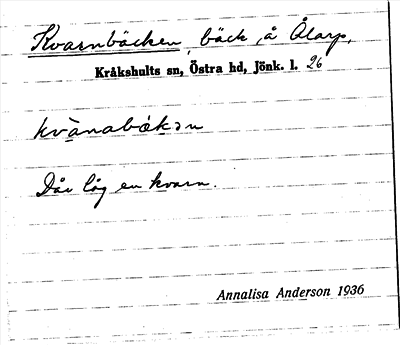 Kvarnbäcken, bäck, å Ålarp,
Kråkshults sn, Östra hd, Jönk. l. 26
kvànabækən
Där låg en kvarn.
Annalisa Anderson 1936